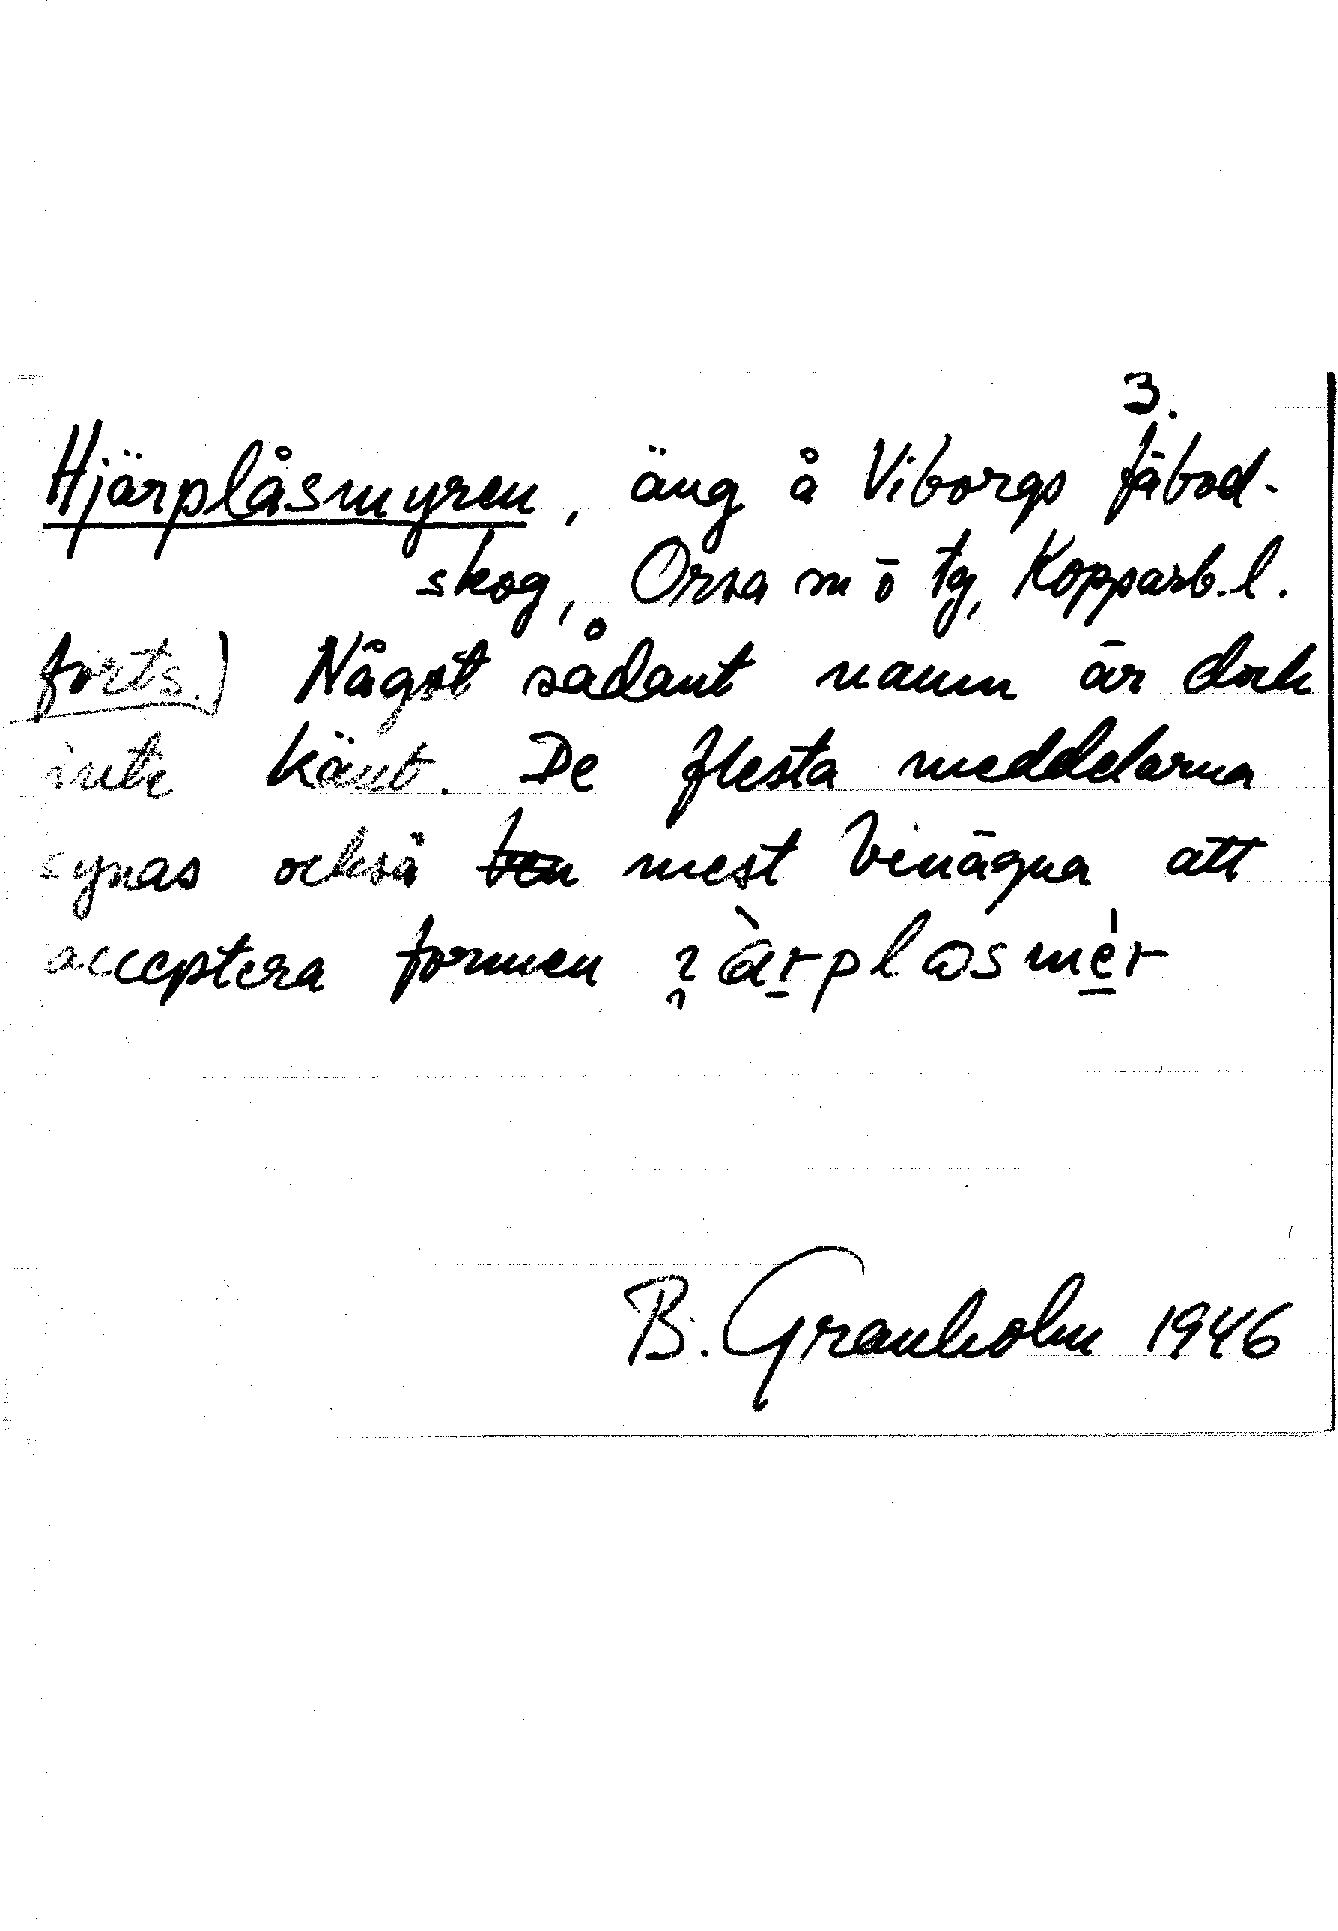 3.
Hjärplåsmyren, äng å Viborgs fäbod-
skog, Orsa m ō tg, Kopparb. l.
forts.) Något sådant namn är dock
inte känt. De flesta meddelarna
synas också mest benägna att
acceptera formen
B. Granholm 1946